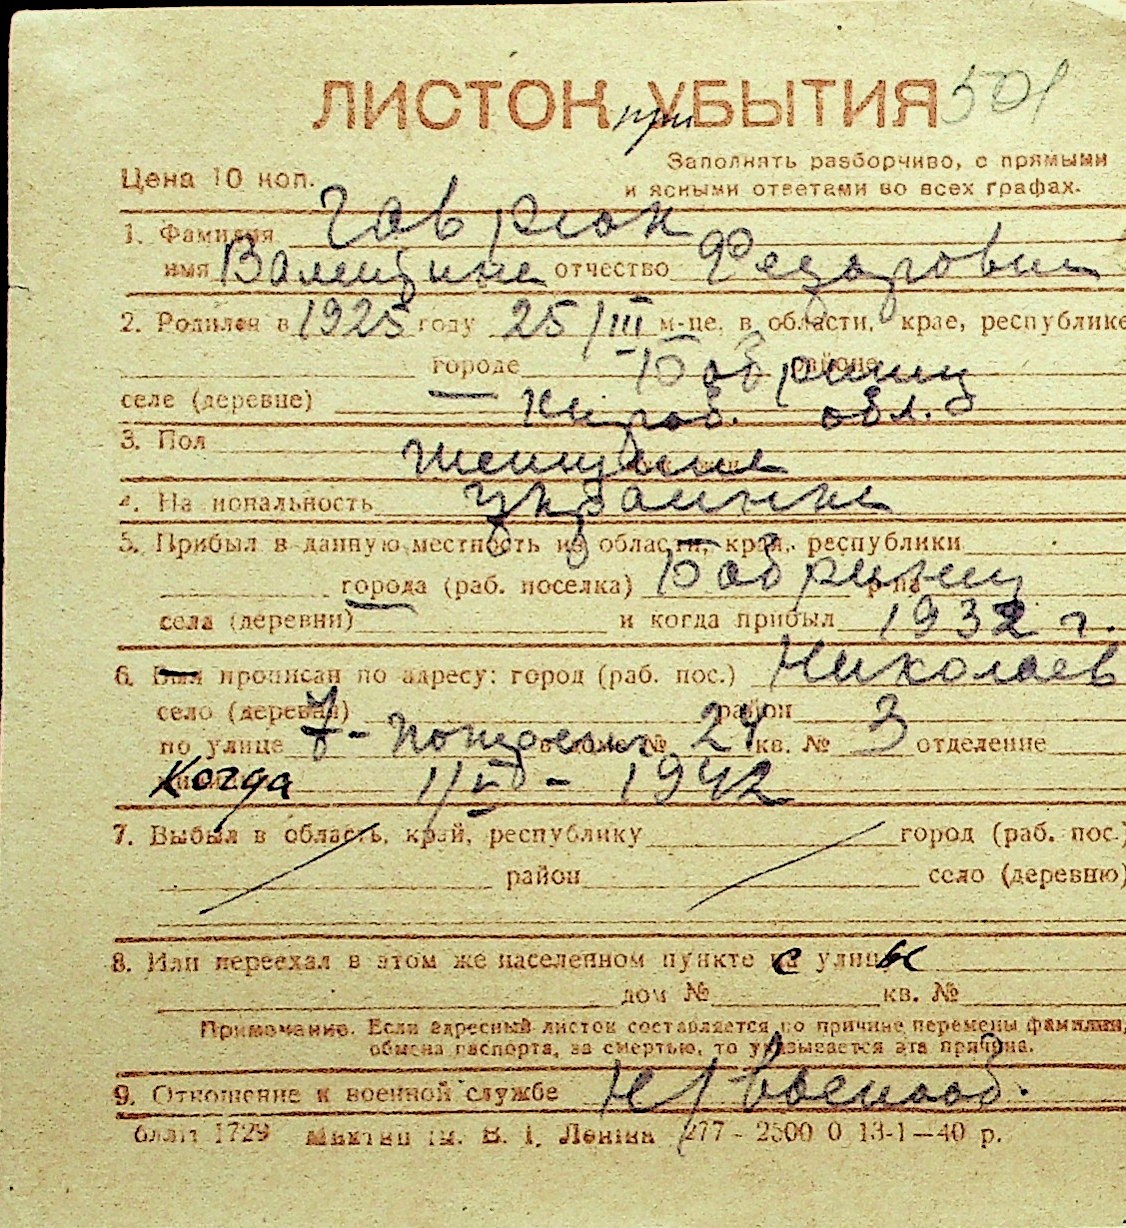 ЛИСТОК при УБЫТИЯ 501
Цена 10 коп.
Заполнять разборчиво, с прямыми
и ясными ответами во всех графах.
1. Фамилия Гаврюк
имя Валентина отчество Федоровна
2. Родился в 1925 году 25/III м-це, в области, крае, республике
городе Бобринец районе
селе (деревне) Кировог. обл.
3. Пол женщина
4. Национальность украинка
5. Прибыл в данную местность из области, края, республики
города (раб. поселка) Бобринец р-на
села (деревни) и когда прибыл 1932 г.
6. Был прописан по адресу: город (раб. пос.) Николаев
село (деревня) район
по улице 7- в доме № 24 кв. № 3 отделение
Когда 1942
7. Выбыл в область, край, республику город (раб. пос.)
район село (деревню)
8. Или переехал в этом же населенном пункте с улицы
дом № кв. №
Примечание. Если адресный листок составляется по причине перемены фамилии,
обмена паспорта, за смертью, то указывается эта причина.
9. Отношение к военной службе н/военнооб.
1729 ім. В. І. Леніна 277 - 2500 0 13-1—40 р.